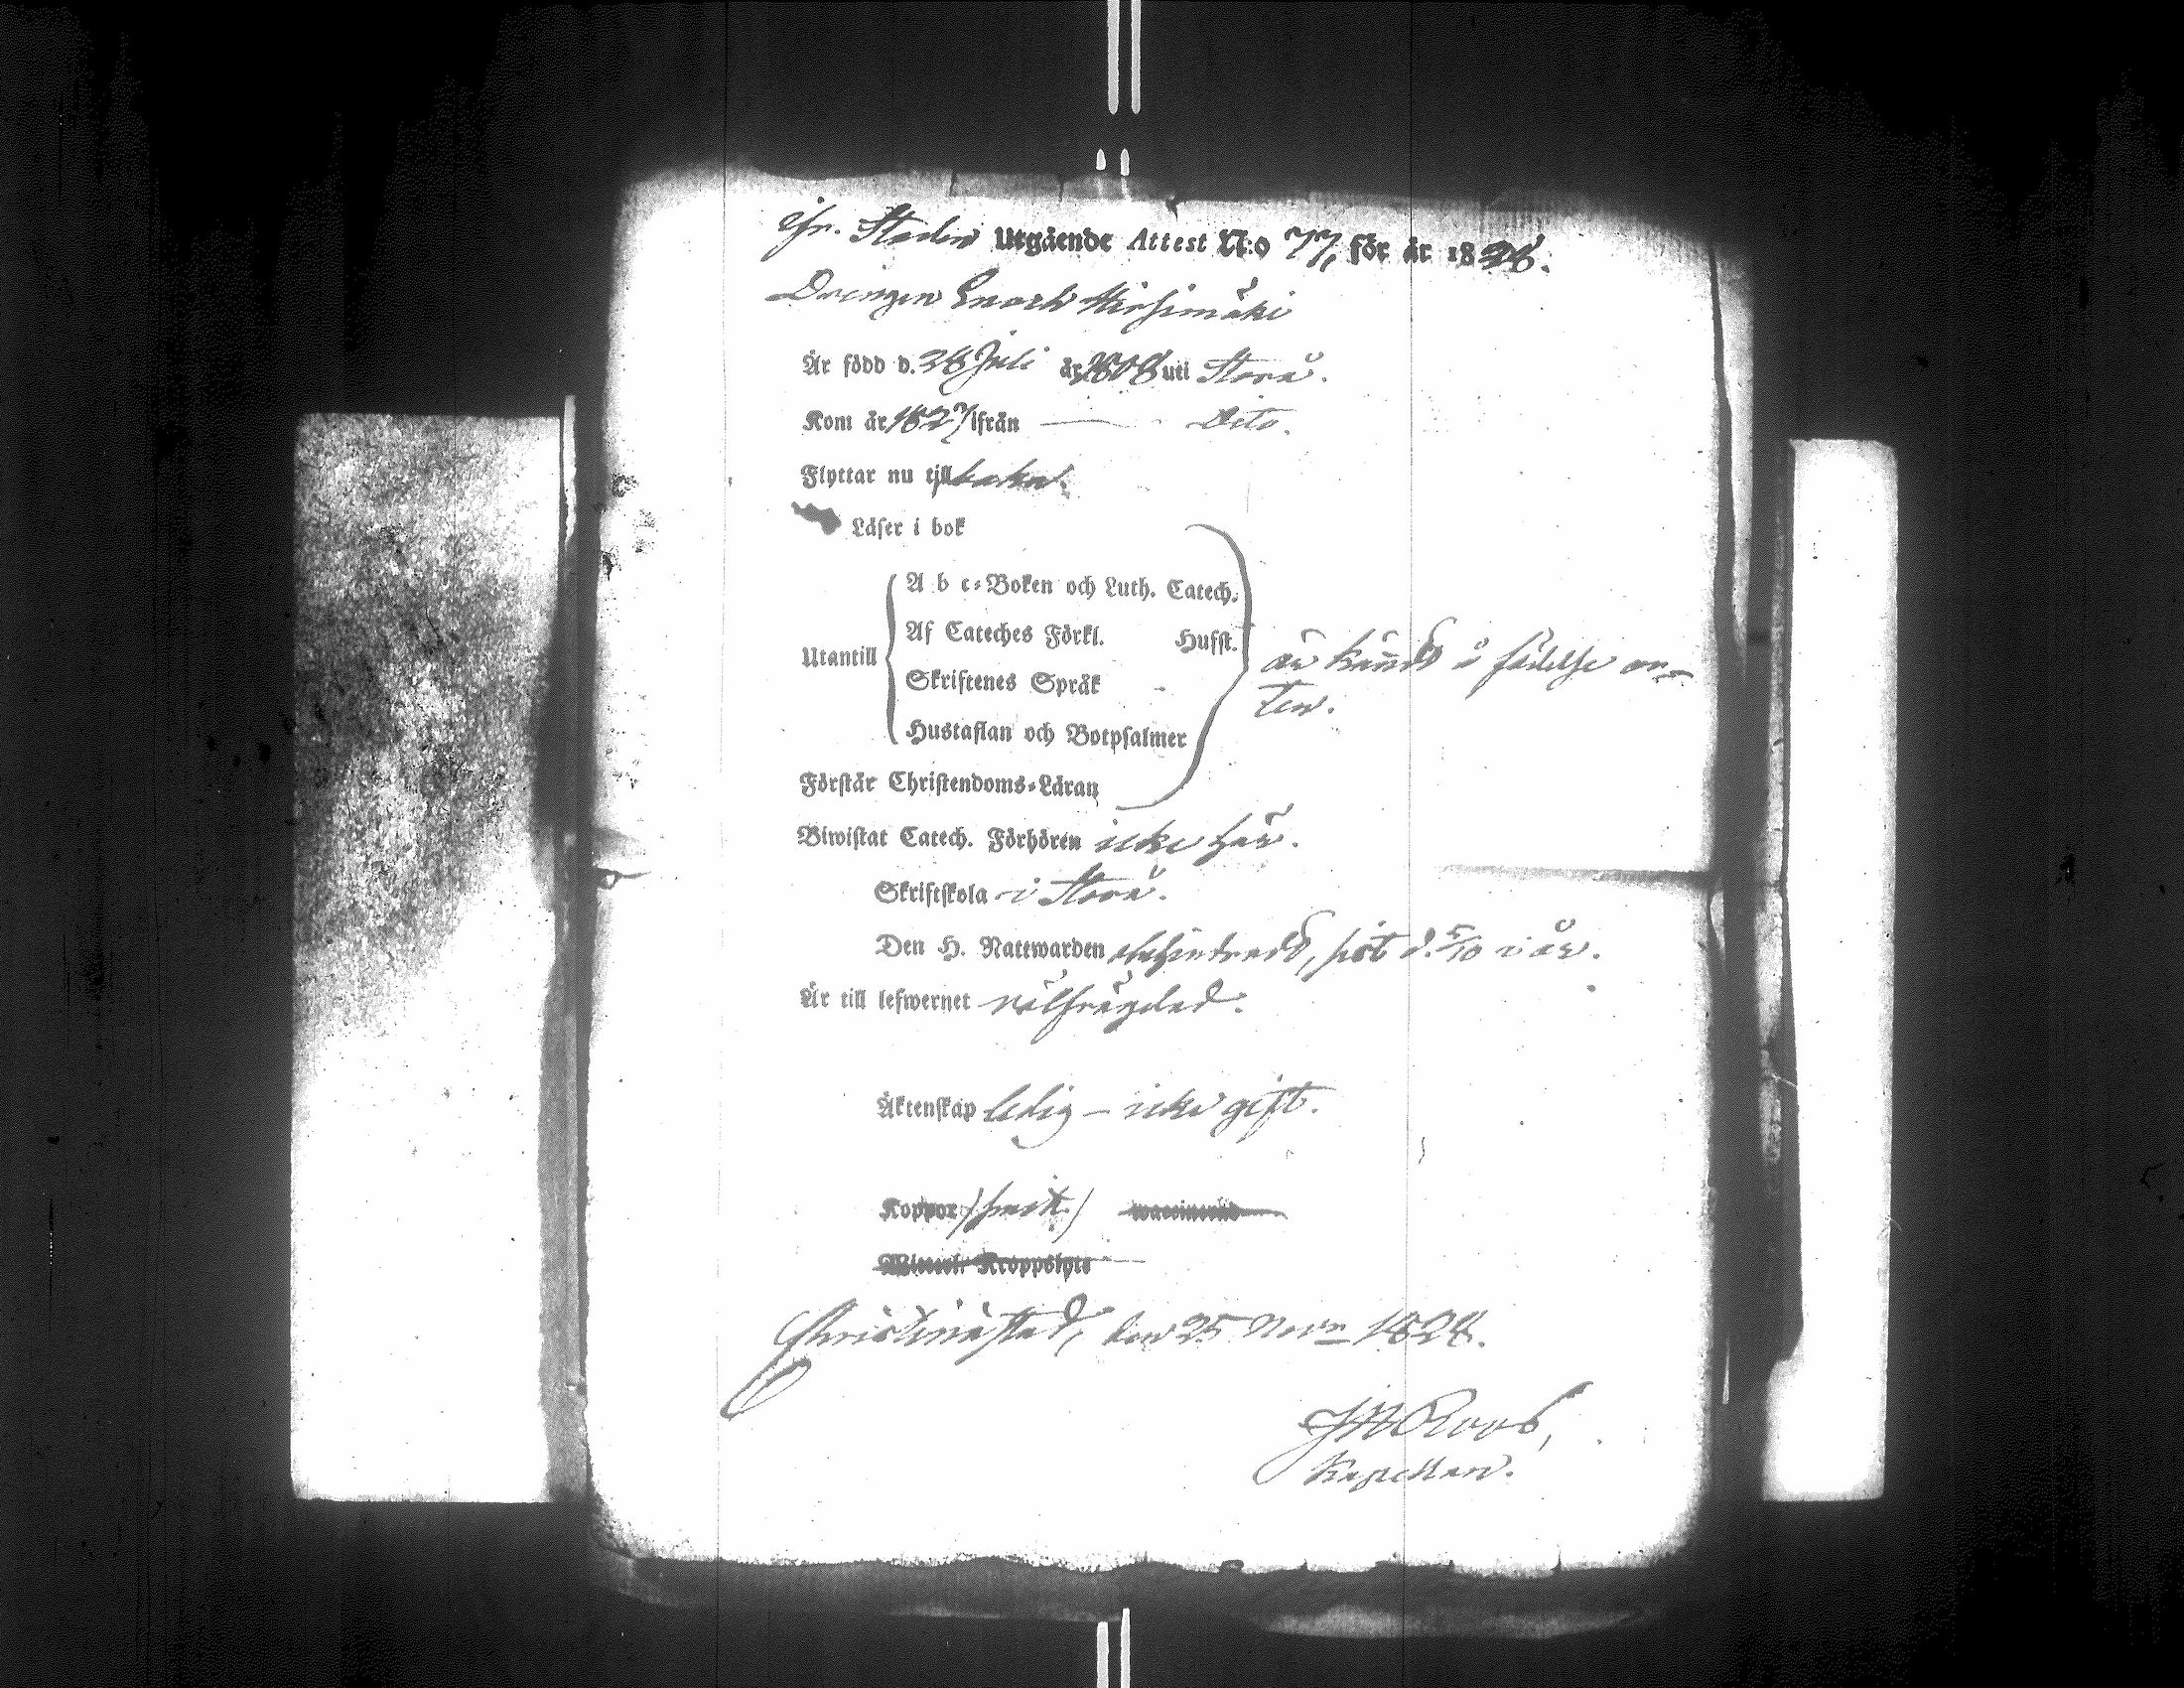 ifr. Staden Utgående Attest N:o 77, för år 1828.
Drengen Enoch Hirsimäki
Är född d. 28 Juli år 1808 uti Storå.
Kom år 1827 ifrån — Dito.
Flyttar nu tillbaka.
Läser i bok
A b c-Boken och Luth. Catech.
Af Cateches Förkl. Hufft.
Utantill
är känd i födelse or-
Skriftenes Språk
ten.
Hustaflan och Botpsalmer
Förstår Christendoms-Läran
Biwistat Catech. Förhören icke här.
Skriftskola i Storå.
Den H. Nattwarden obehindrad, sist d. 5/10 i år.
Är till lefwernet välfrägdad.
Äktenskap ledig — icke gift.
Koppor
Christinæstad, den 25 Nov. 1828.
Roos,
Kapellan.